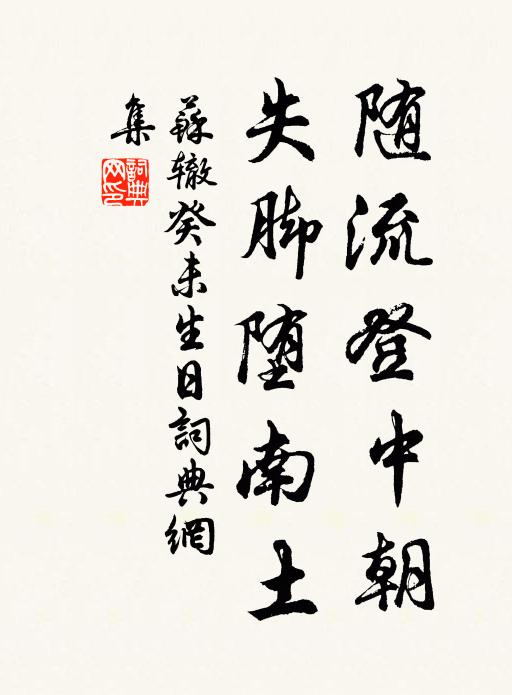 随流登中朝
失脚堕南土
蘇辙癸未生日詞典網
集
詞典
网印